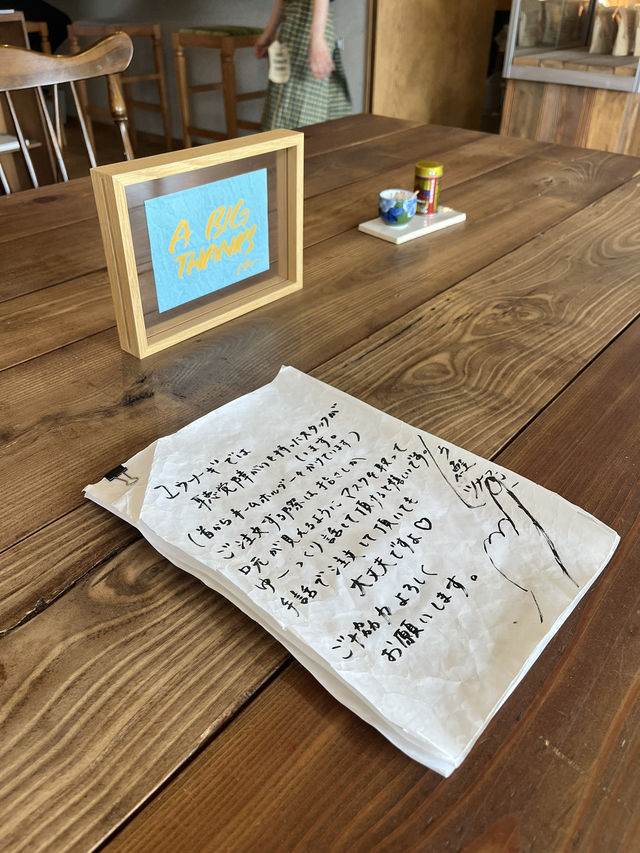 A BIG
THANKS
エクナギでは
聴覚障がいを持ったスタッフが
います。
(首からネームホルダーをかけています)
ご注文する際は、お話さしか
口元が見えるようにマスクを取って
ゆーっくり話して頂けると嬉しいです。
手話でご注文して頂いても
大丈夫ですよ♡
ご協力よろしく
お願いします。